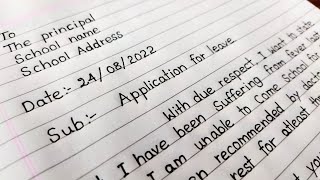 To
The principal
School name
School Address
Date:- 24/08/2022
Sub:- Application for leave
With due respect, I want to state
I have been Suffering from fever last
I am unable to Come School for
recommended by doctor
rest for atleast